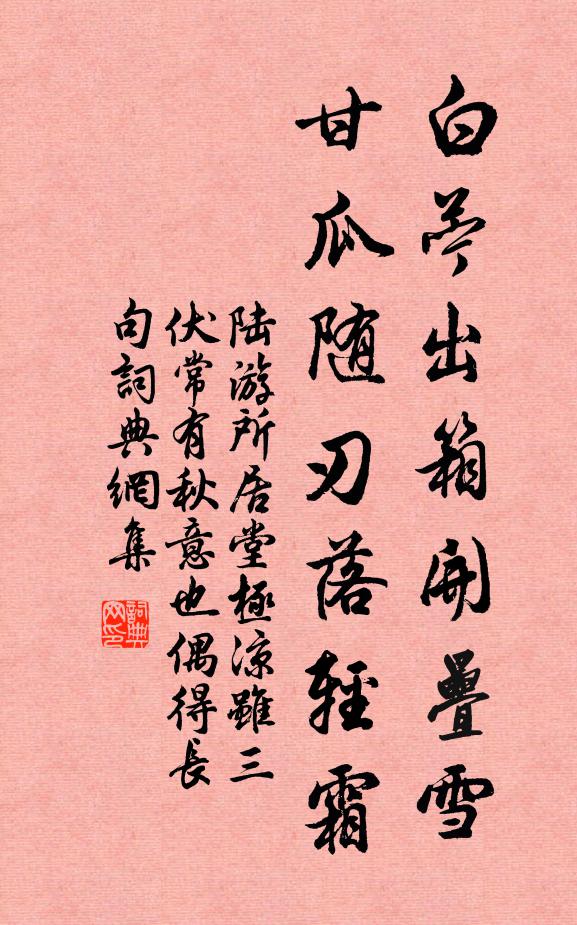 白苧出箱開疊雪
甘瓜随刃落輕霜
陆游所居堂極凉雖三
伏常有秋意也偶得長
句詞典網集
詞典
网印